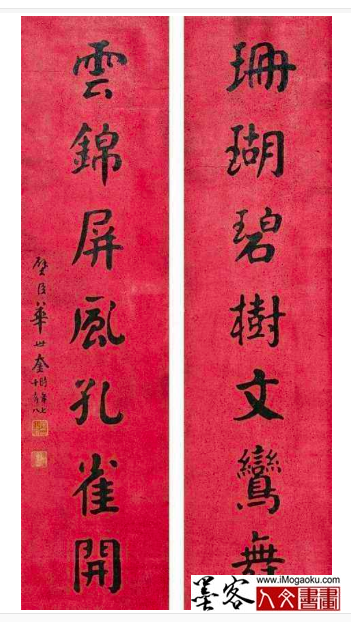 珊瑚碧樹文鸞舞
雲錦屏風孔雀開
璧臣華世奎時年
墨客
www.iMogaoku.com
人文書畫